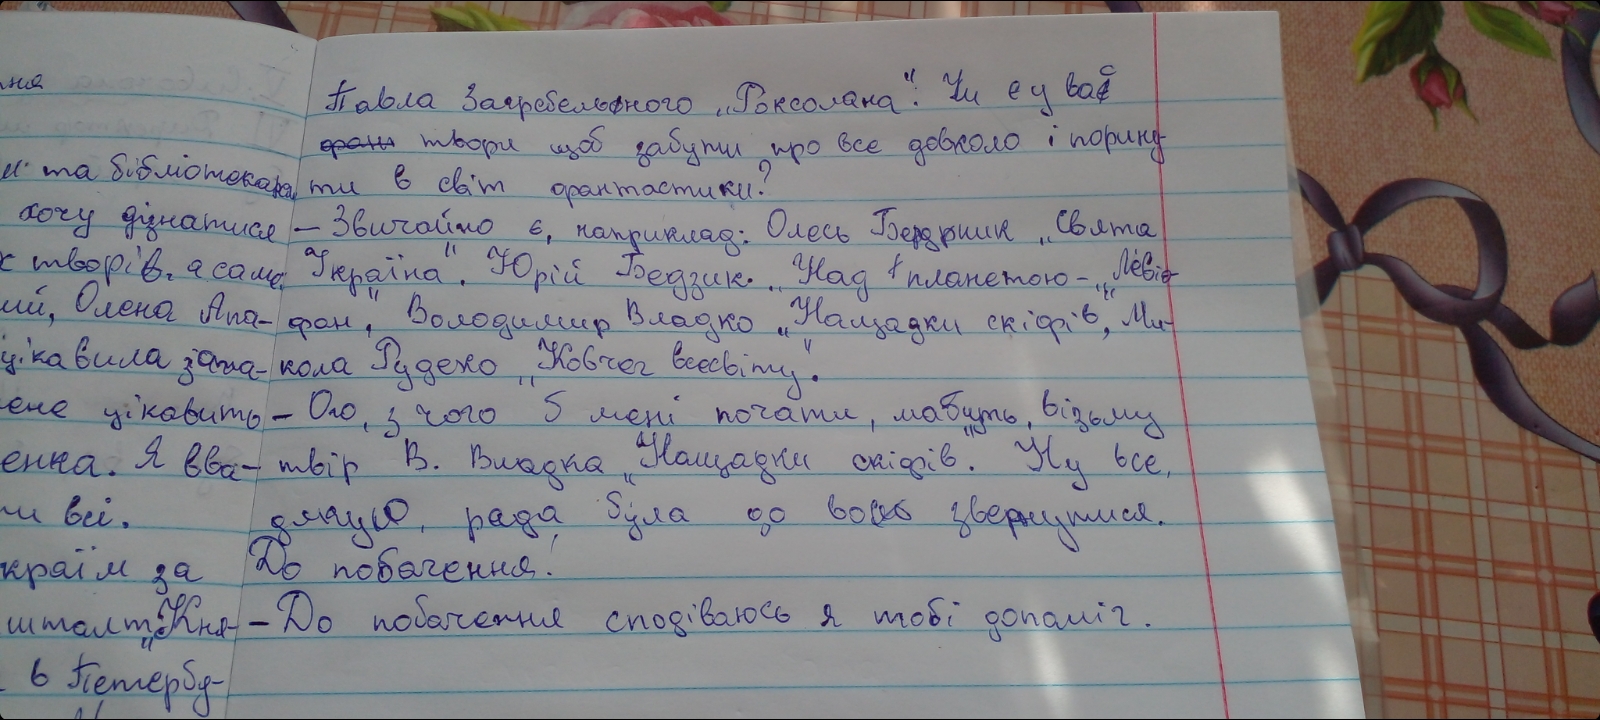 ня
и та бібліотекара
хочу дізнатися
х творів, а саме,
ий, Олена Апа-
цікавила зага-
ене цікавить
енка. Я вва-
и всі.
країм за
шталт „Кня-
в Петербу-
Павла Загребельного „Роксолана". Чи є у вас
твори щоб забути про все довколо і порину-
ти в світ фантастики?
– Звичайно є, наприклад: Олесь Бердрник „Свята
Україна". Юрій Бедзик. „Над планетою – „Левіа-
фан", Володимир Владко „Нащадки скіфів", Ми-
кола Руденко „Ковчег всесвіту".
– Ого, з чого б мені почати, мабуть, візьму
твір В. Владка „Нащадки скіфів". Ну все,
дякую, рада була до вас звернутися.
До побачення!
– До побачення сподіваюсь я тобі допоміг.